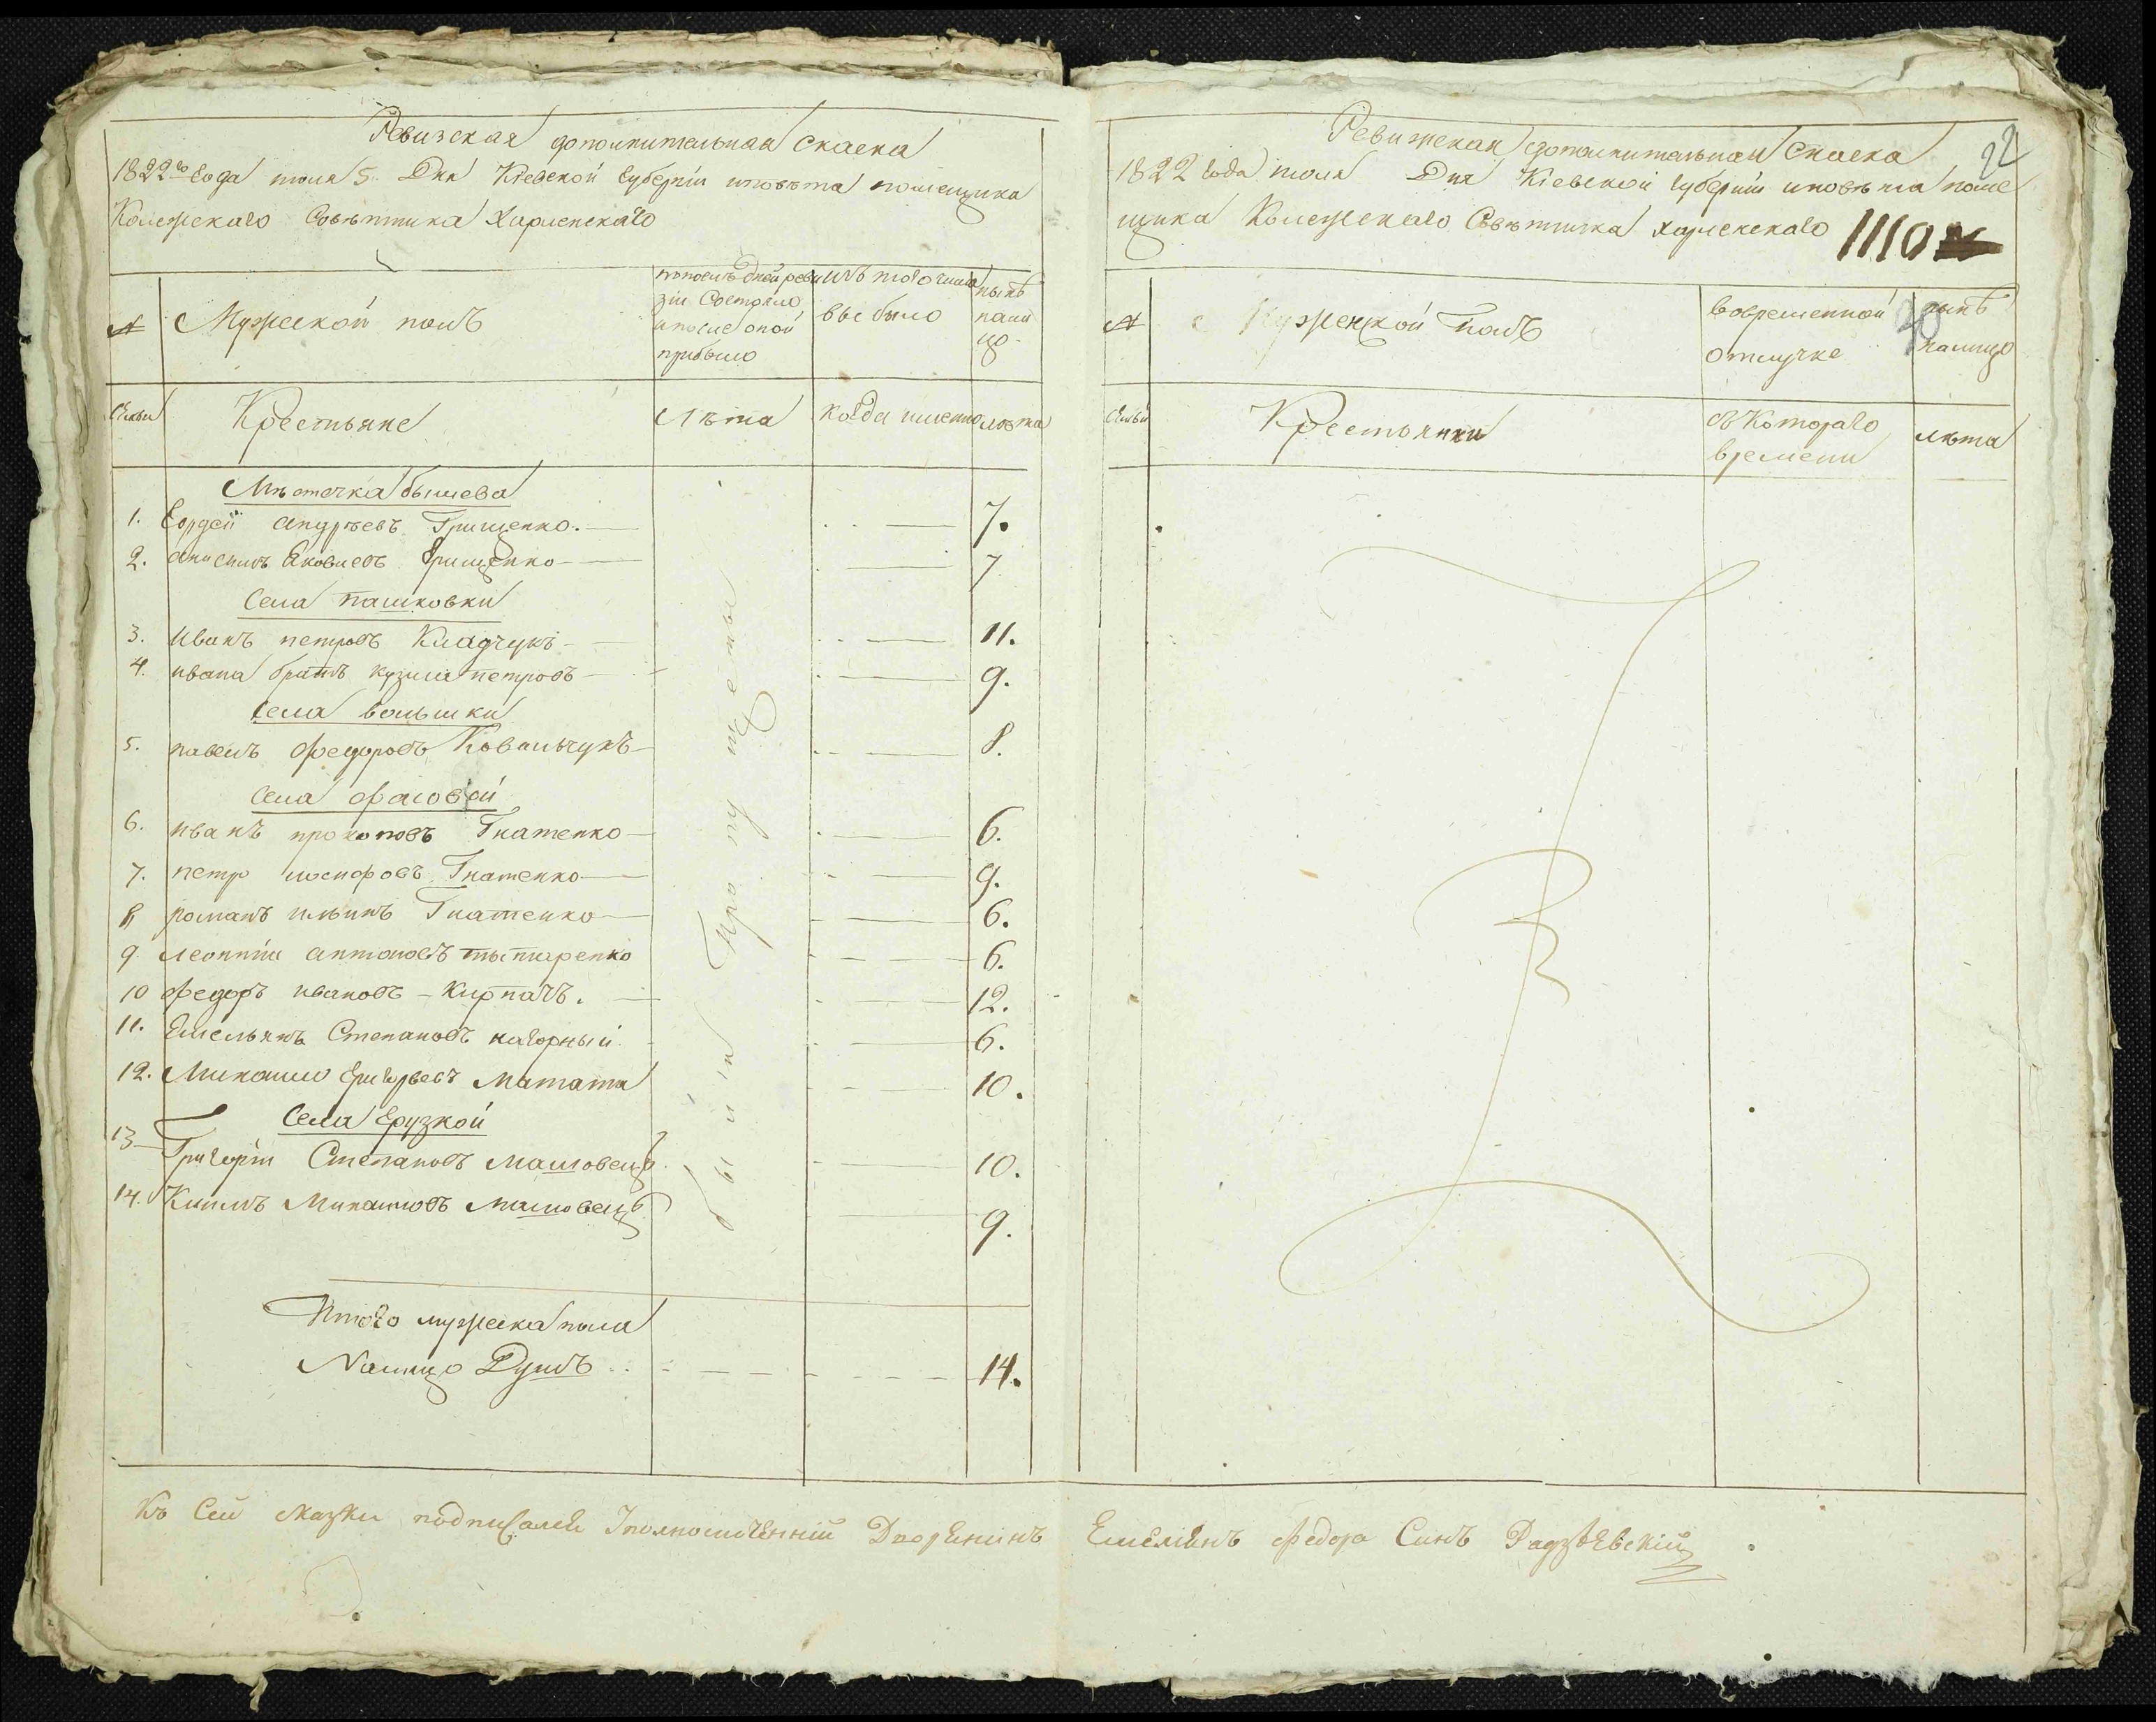 Ревизская дополнительная Скаска
1822го Года июля 5 Дня Кіевской Губерніи иповѣта помещика
Колежскаго Совѣтника Харленскаго
№ Мужеской полъ
попоследнейреви
зіи Состояло
ипосле оной
прибыло
изъ того числа
выбыло
нынѣ
нали
цо
Семьи Крестьяне Лѣта когда имянно лѣта
Мѣстечка бышева
1. Гордей андрѣевъ Грищенко. 7.
2. анисимъ Яковлевъ Грищенко 7
Села пашковки
3. Иванъ петровъ Кладчукъ 11.
4. ивана братъ кузма петровъ 9.
Села вольшки
5. павелъ федоровъ Ковальчукъ 8.
Села фасовой
6. иванъ прокоповъ Гнатенко 6.
7. петро иосифовъ Гнатенко 9.
8 романъ ильинъ Гнатенко 6.
9 леонтіи антоновъ тытаренко 6.
10 федоръ ивановъ Кирпачъ. 12.
11. Емельянъ Степановъ нагорный 6.
12. Михаило Григорьевъ Матата 10.
Села Грузкой
13 Григоріи Степановъ машовецъ 10.
14. Климъ Михаиловъ машовецъ 9.
были при ней
Итого мужеска пола
Налицо Душъ 14.
Ревижская дополнительная Скаска 22
1822 Года июля Дня Кіевской Губерніи иповѣта поме
щика Колежскаго Совѣтника Харленскаго 1110
№ Женской Полъ
вовременной
отлучке
нынѣ
налицо
30
Семьи Крестьянки
съ Котораго
времени
лѣта
Къ Сей Сказки подписалсь Уполномоченній Дворенинъ Емелянъ Федора Синъ Радзѣевскій